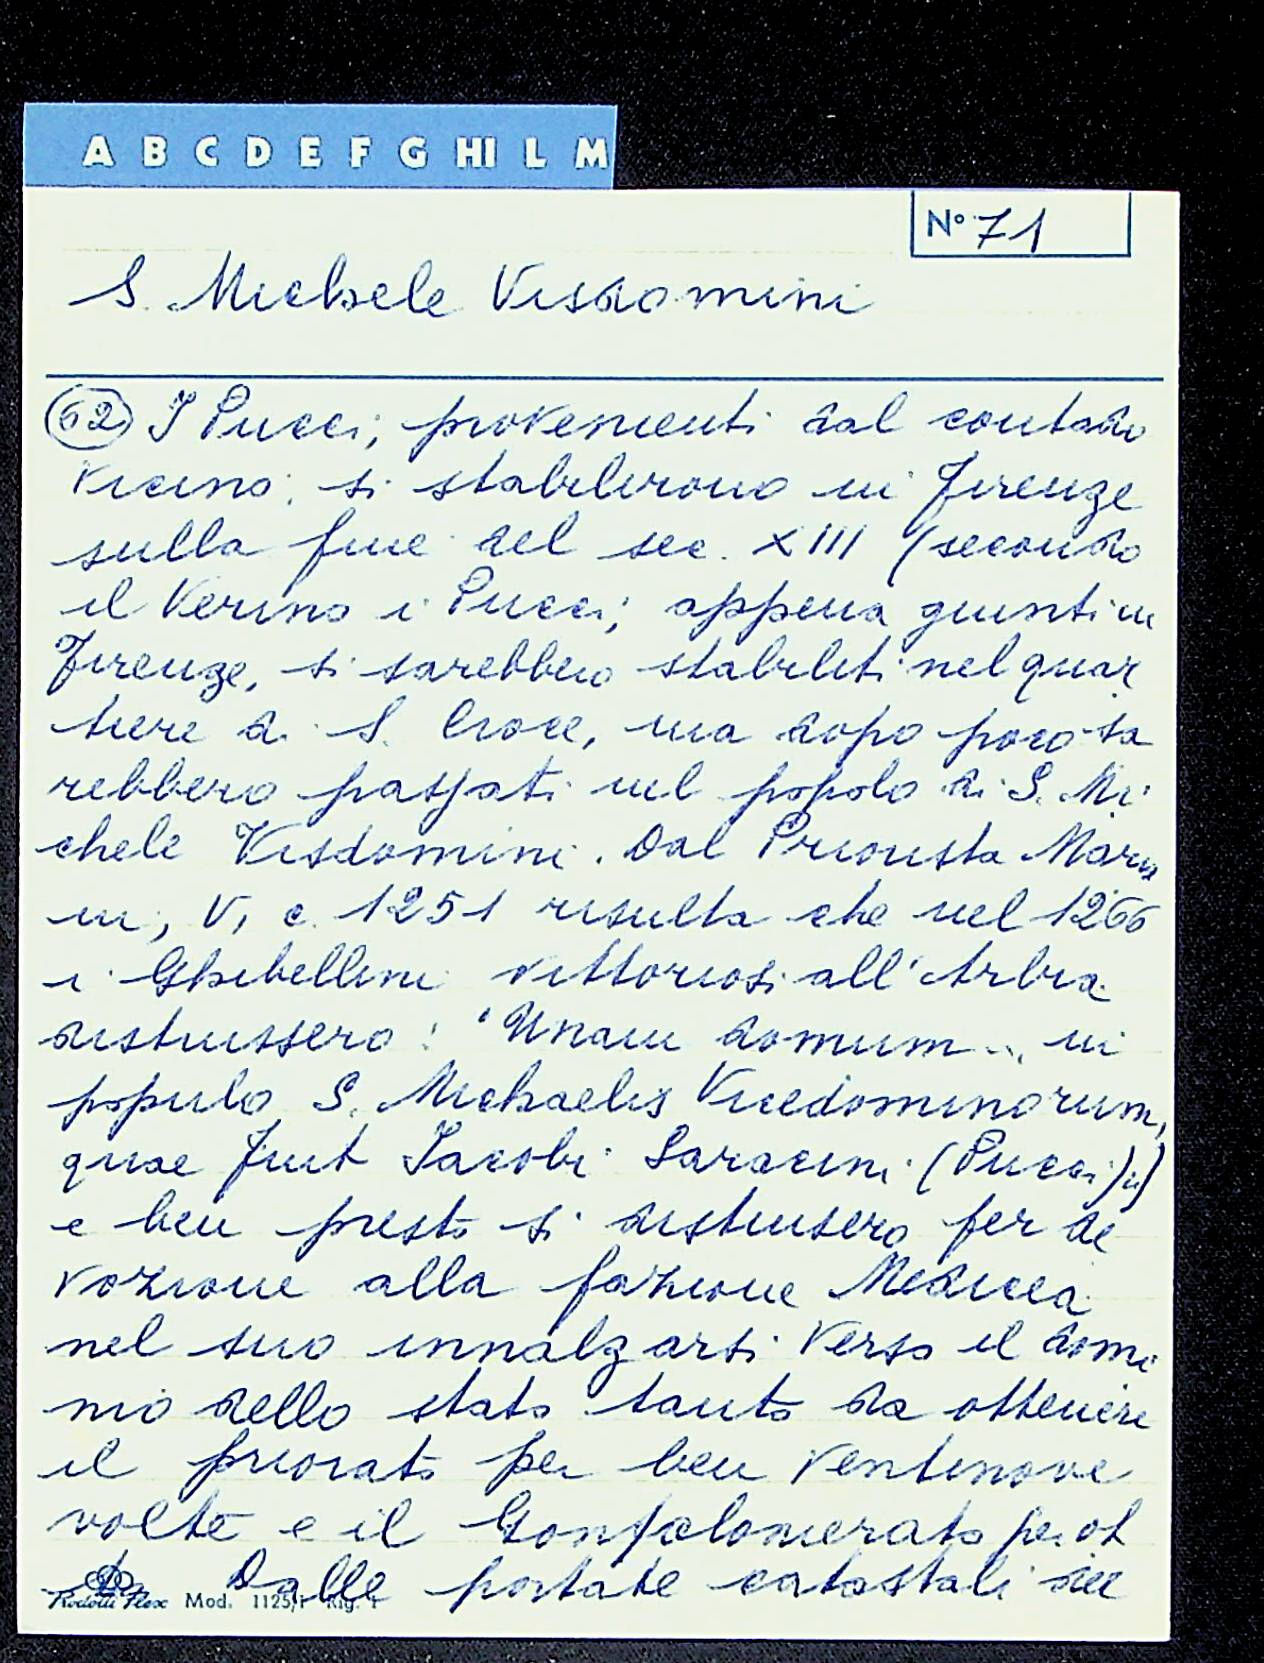 A B C D E F G HI L M
N° 71
S. Michele Visdomini
(62) I Pucci, provenienti dal contado
vicino, si stabilirono in Firenze
sulla fine del sec. XIII (secondo
il Verino i Pucci, appena giunti in
Firenze, si sarebbero stabiliti nel quar
tiere di S. Croce, ma dopo poco sa
rebbero passati nel popolo di S. Mi
chele Visdomini. Dal Priorista Maria
ni, V, c. 1251 risulta che nel 1266
i Ghibellini vittoriosi all'Arbia
distrussero: "Unam domum... in
populo S. Michaelis Vicedominorum,
quae fuit Iacobi Saracini (Pucci)")
e ben presto si distinsero per de
vozione alla fazione Medicea
nel suo innalzarsi verso il domi
nio dello stato tanto da ottenere
il priorato per ben ventinove
volte e il Gonfalonierato per ot
Dalle portate catastali del
Mod. 1125/1 Rig. 1